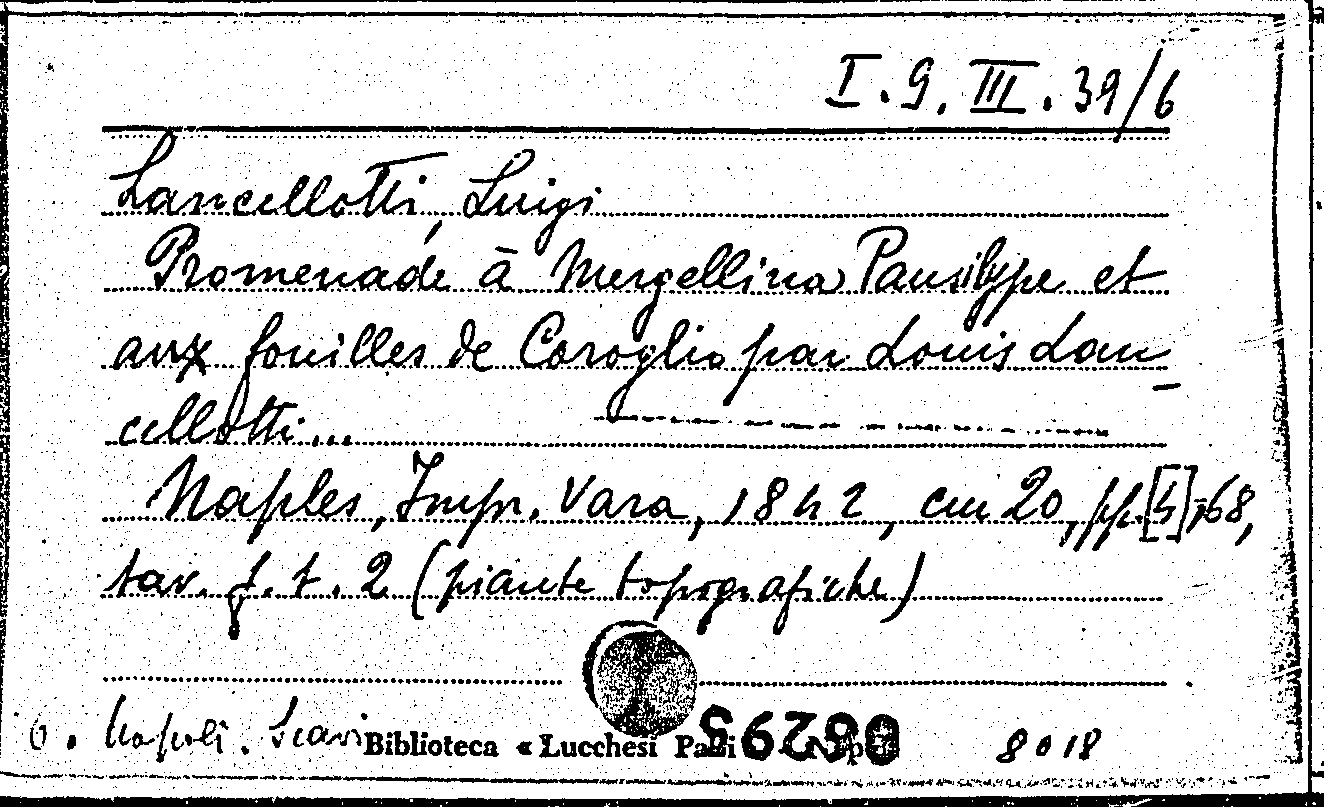 I. 9. III. 39/6
Lancellotti, Luigi
Promenade à Mergellina Pausilype et
aux fouilles de Coroglio par Louis Lan-
cellotti...
Naples, Impr. Vara, 1842, cm 20, pp. [4], 68,
tav. f. t. 2 (piante topografiche)
6. Napoli. Scavi
Biblioteca « Lucchesi Palli
06295
8018